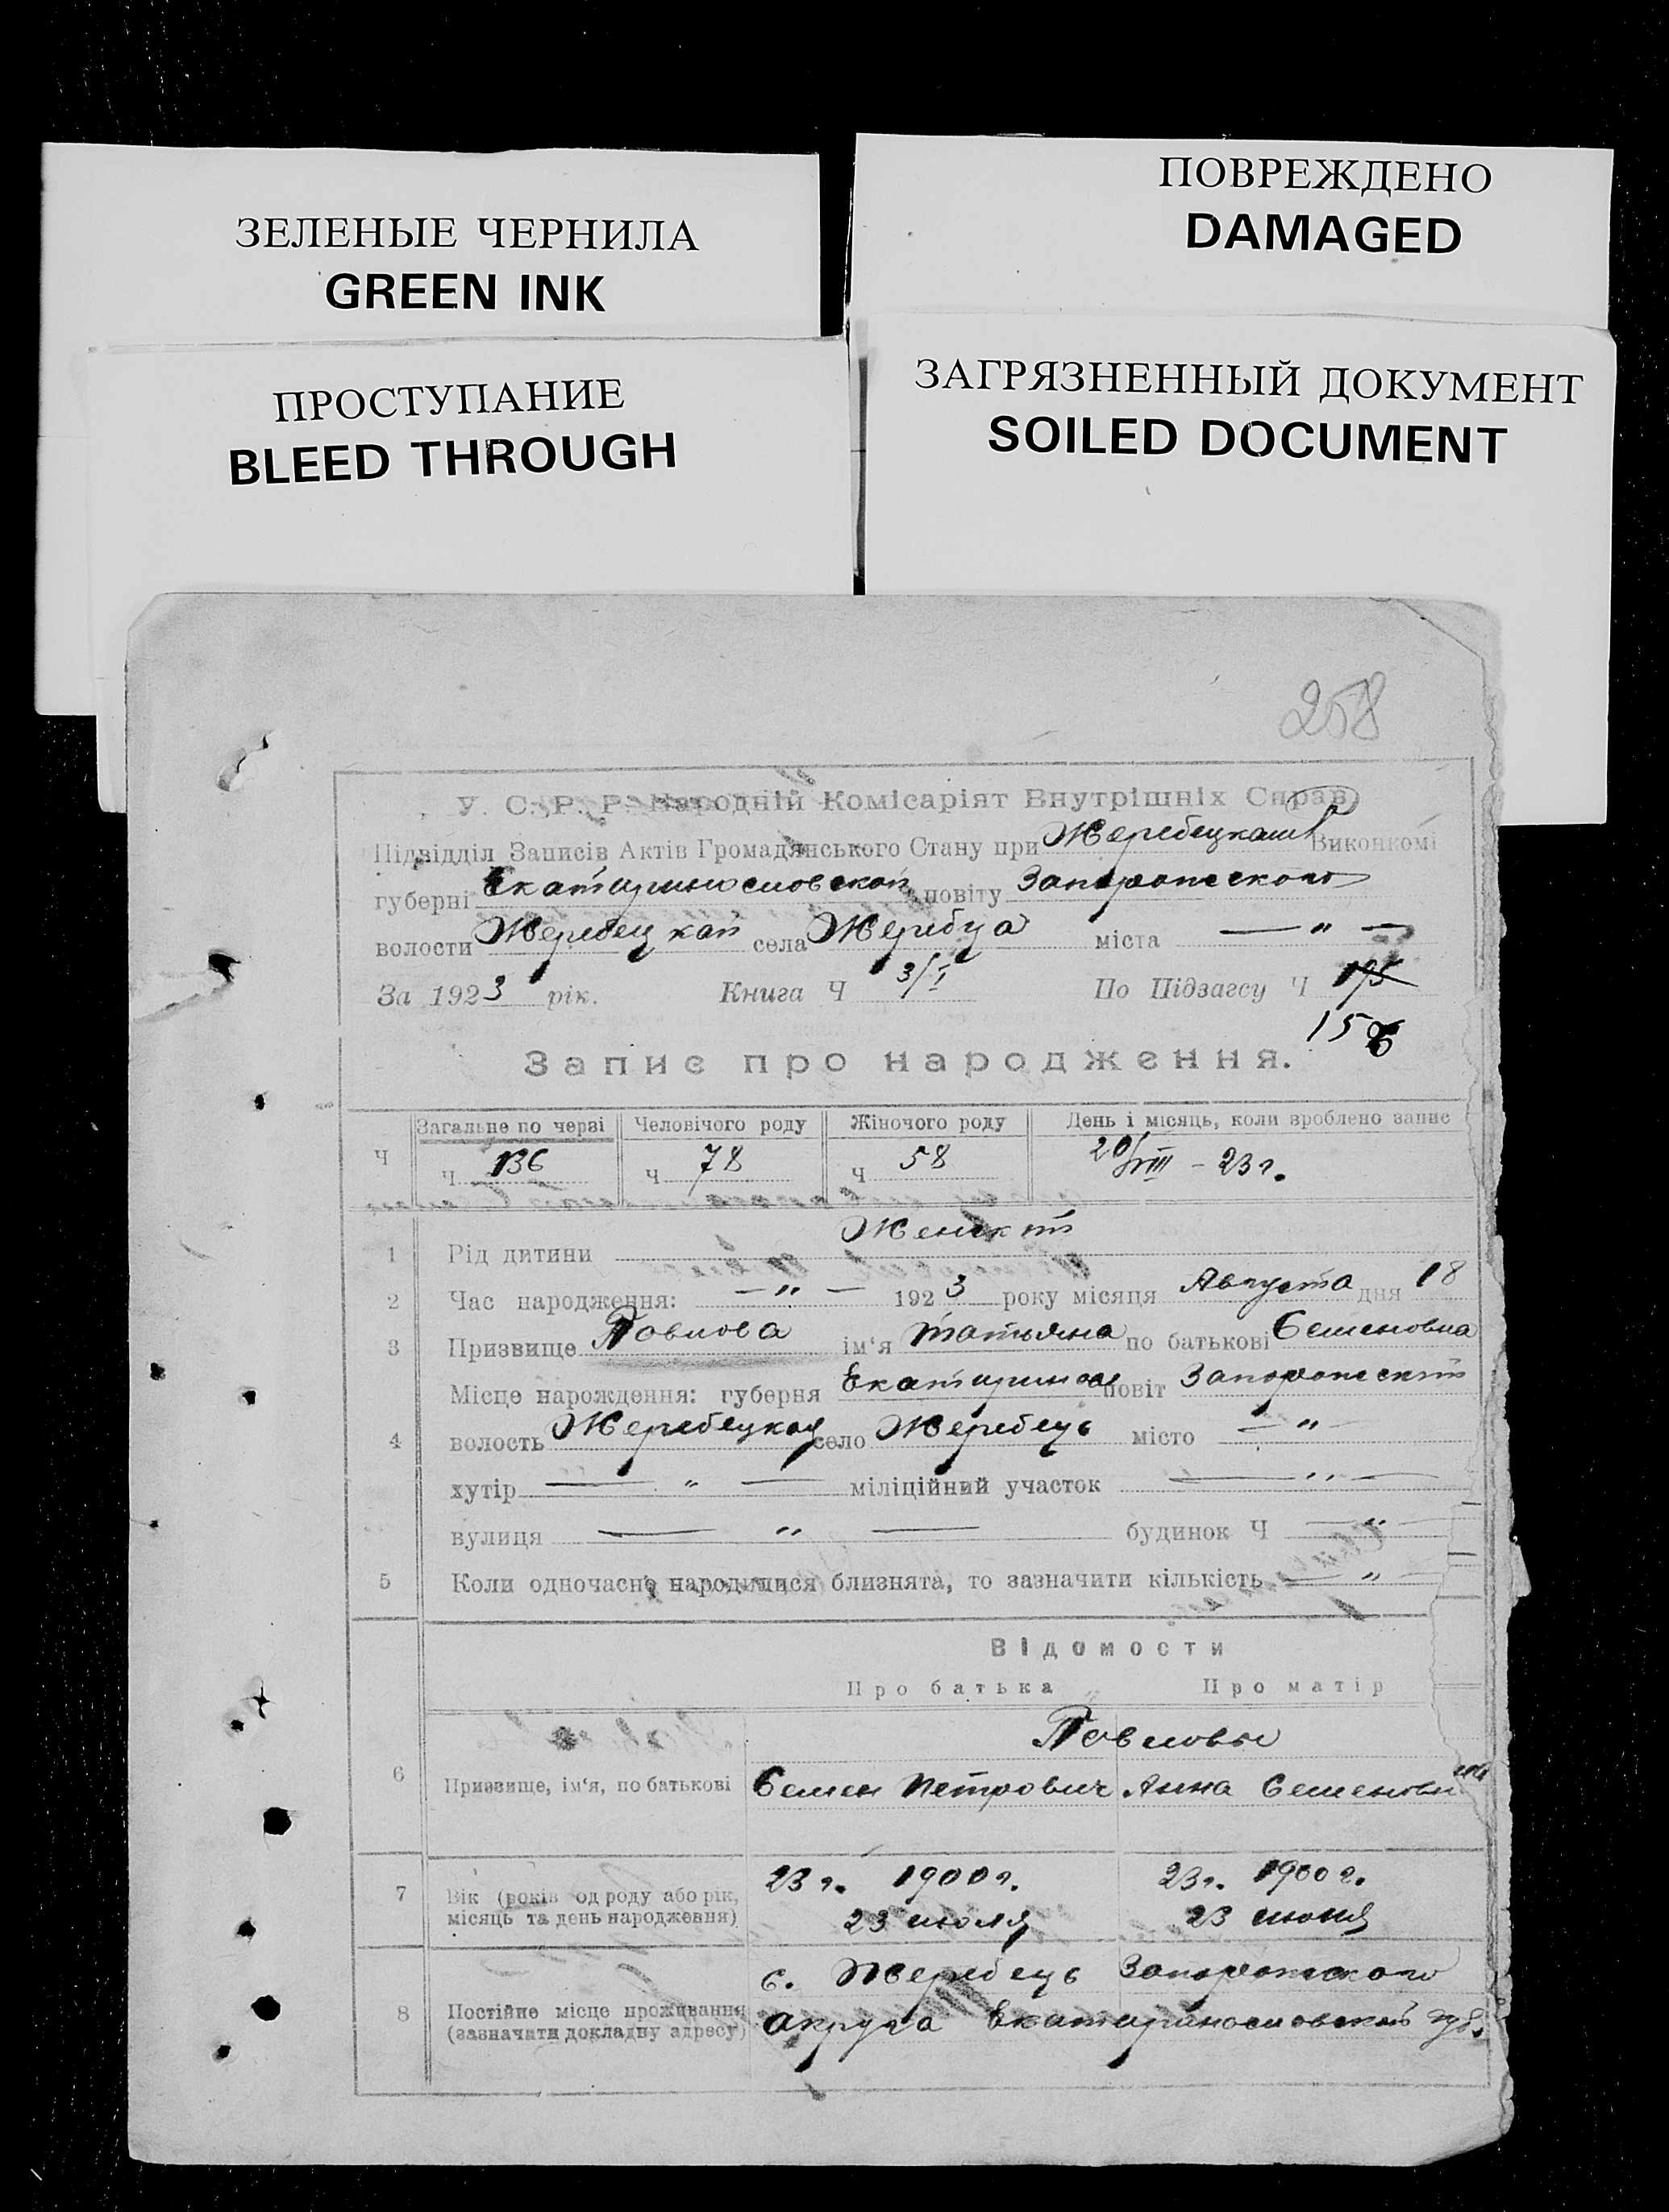 ЗЕЛЕНЫЕ ЧЕРНИЛА
GREEN INK
ПРОСТУПАНИЕ
BLEED THROUGH
ПОВРЕЖДЕНО
DAMAGED
ЗАГРЯЗНЕННЫЙ ДОКУМЕНТ
SOILED DOCUMENT
258
У. С. Р. Р. Народній Комісаріят Внутрішніх Справ
Підвідділ Записів Актів Громадянського Стану при Жеребецком Виконкомі
губерні Екатеринославской повіту Запорожского
волости Жеребецкой села Жеребца міста — " —
За 1923 рік. Книга Ч 3/I По Підзагсу Ч 195
156
Запис про народження.
Ч Загальне по черзі Человічого роду Жіночого роду День і місяць, коли зроблено запис
Ч 136 Ч 78 Ч 58 20/VIII – 23 г.
1 Рід дитини Женск
2 Час народження: — " — 1923 року місяця Августа дня 18
3 Призвище Повлова ім'я Татьяна по батькові Семеновна
Місце нарождення: губерня Екатеринос повіт Запорожский
4 волость Жеребецкая село Жеребець місто — " —
хутір — " — міліційний участок — " —
вулиця — " — будинок Ч — " —
5 Коли одночасно народилися близнята, то зазначити кількість — " —
Відомости
Про батька Про матір
Повловы
6 Призвище, ім'я, по батькові Семен Петрович Анна Семеновна
7 Вік (років од роду або рік, місяць та день народження) 23 г. 1900 г. 23 г. 1900 г.
23 июля 23 июня
8 Постійне місце проживання (зазначити докладну адресу) с. Жеребець Запорожского
округа Екатеринославской губ.